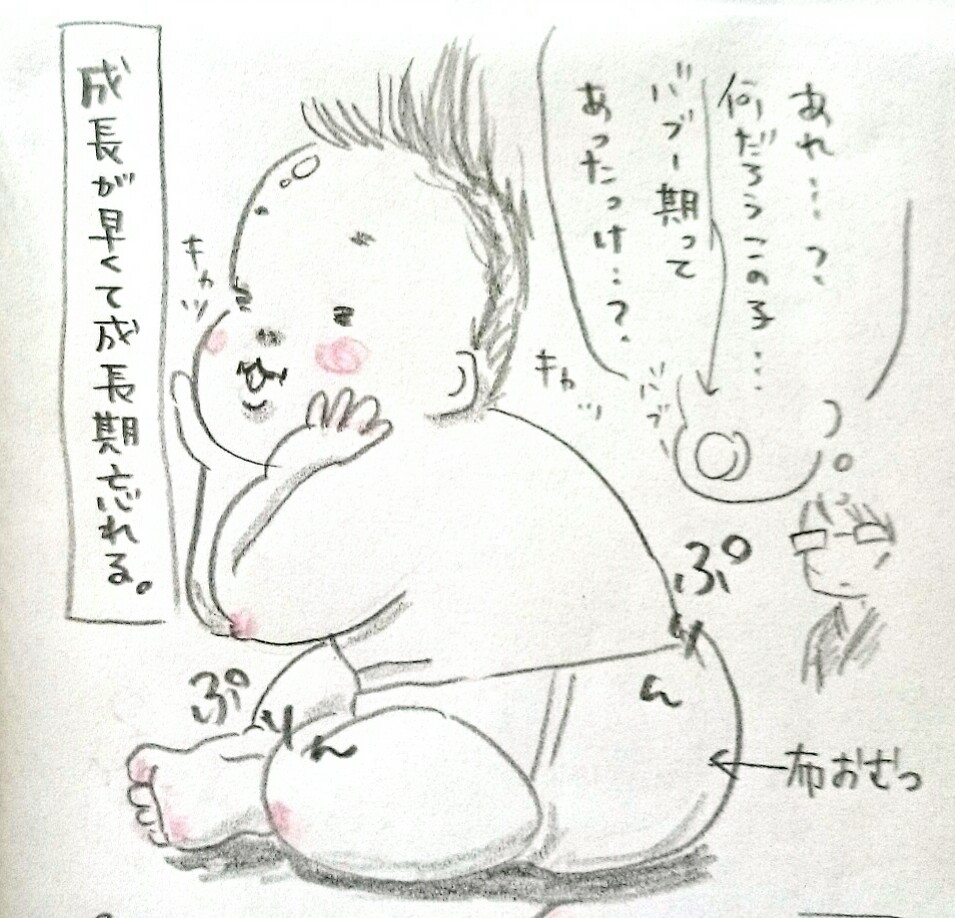 あれ…？、
何だろうこの子…
バブー期って
あったっけ…？
バブ
キャッ
キャッ
ぷりん
ぷりん
←布おむつ
成長が早くて成長期忘れる。